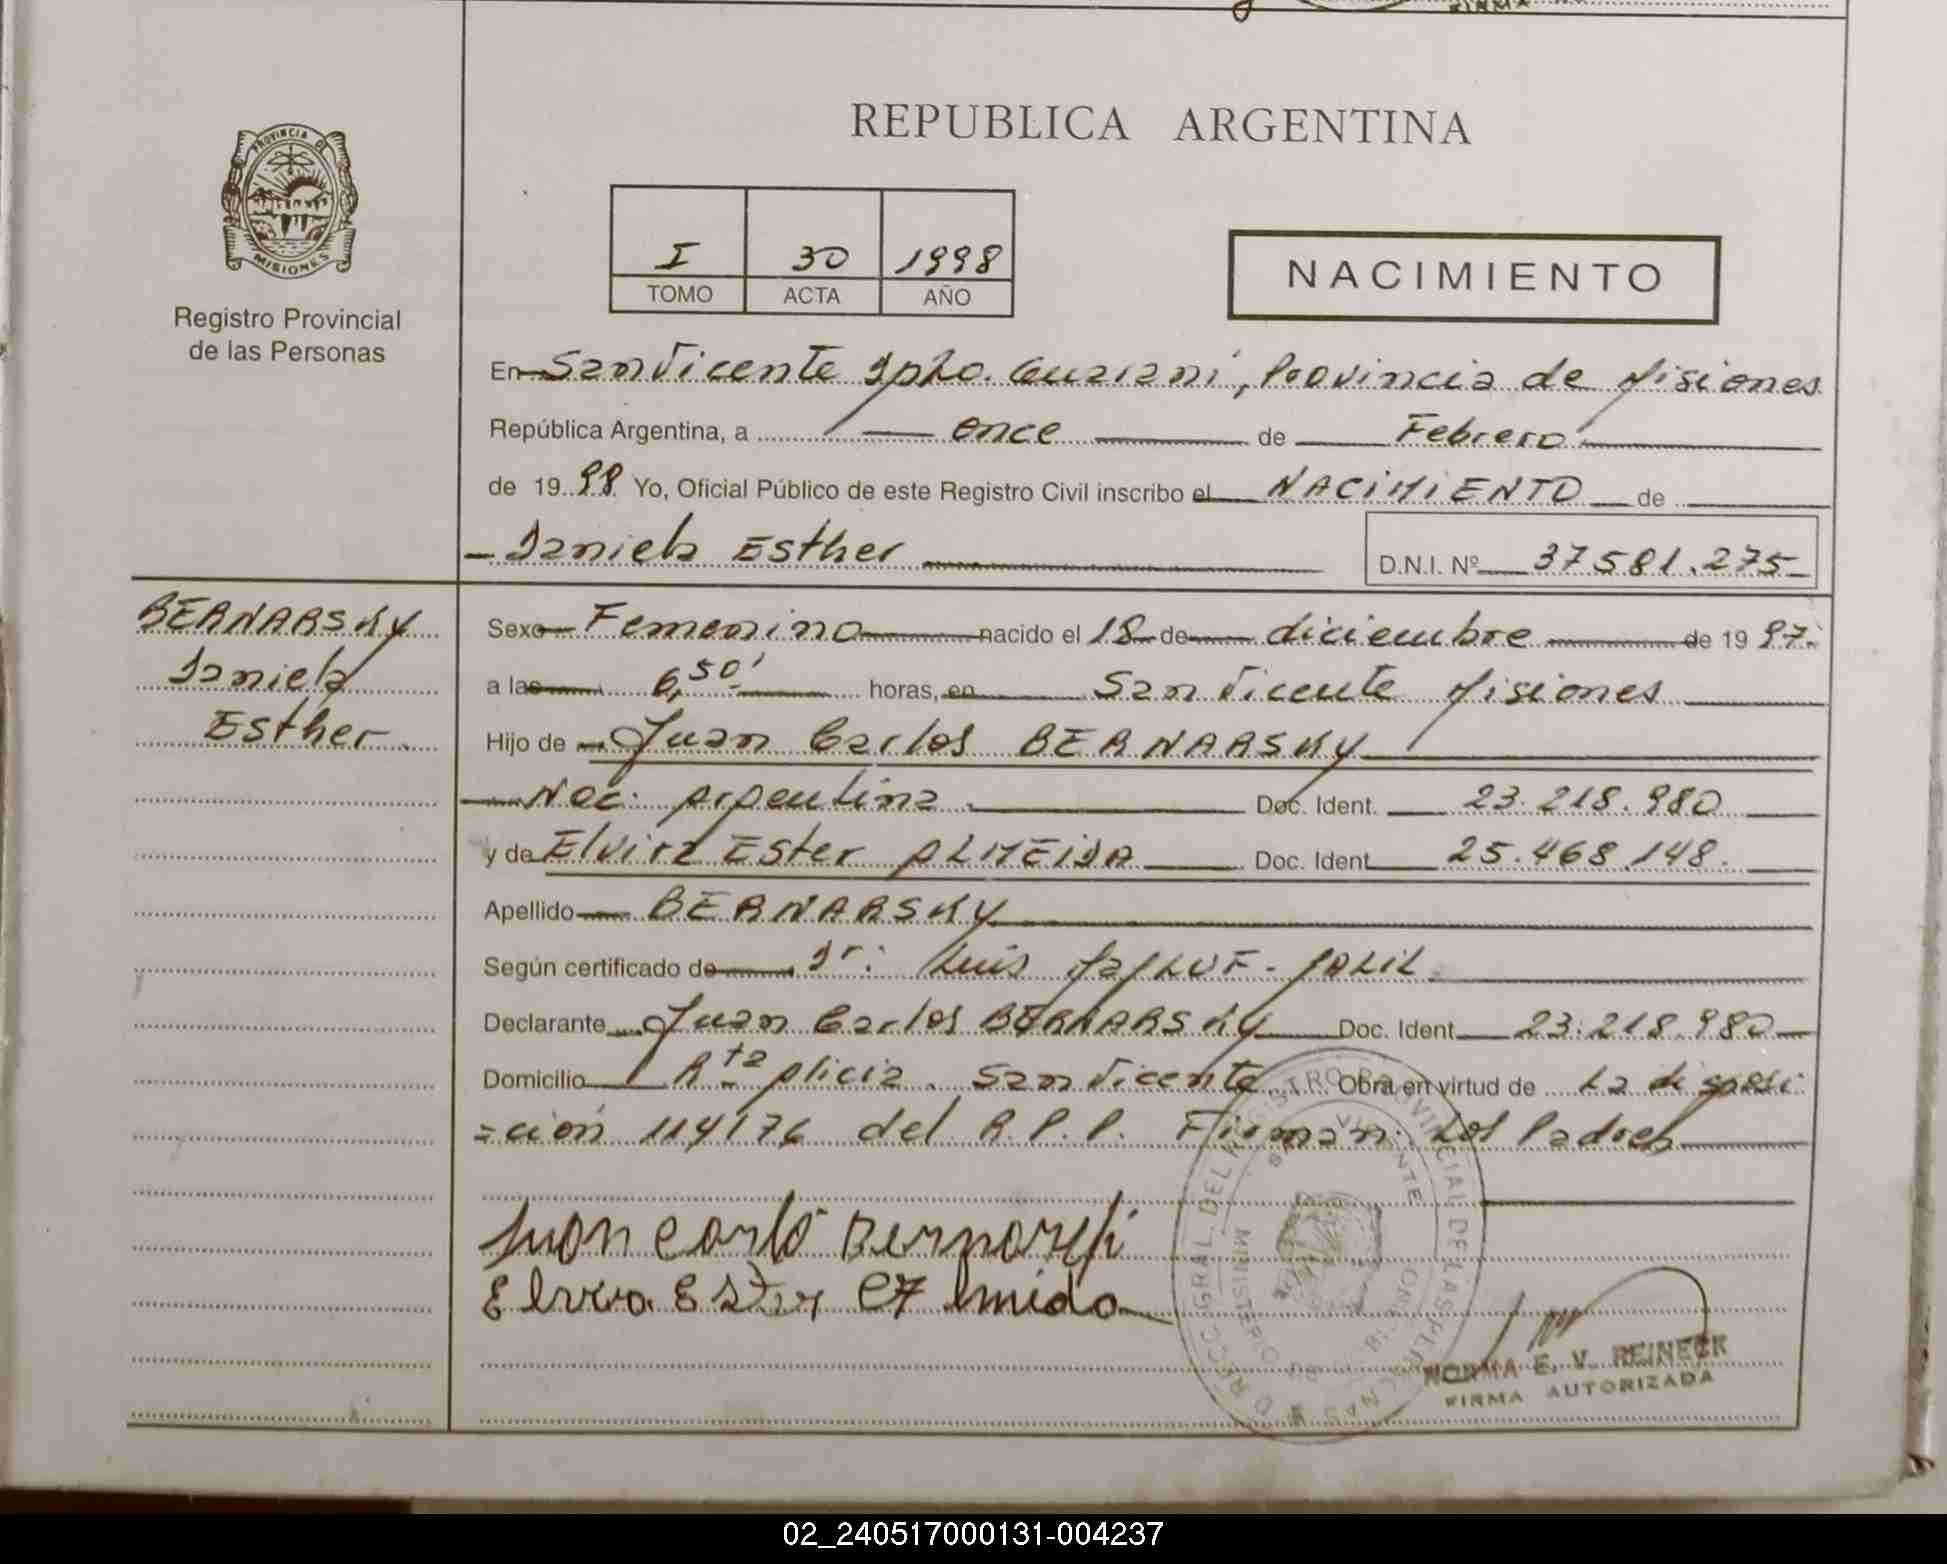 FIRMA
REPUBLICA ARGENTINA
PROVINCIA DE
MISIONES
Registro Provincial
de las Personas
I 30 1998
TOMO ACTA AÑO
NACIMIENTO
En San Vicente Dpto. Guarani, Provincia de Misiones
República Argentina, a once de Febrero
de 1998 Yo, Oficial Público de este Registro Civil inscribo el NACIMIENTO de
Daniela Esther D.N.I. Nº 37581.275
BERNARSKY
Daniela
Esther
Sexo Femenino nacido el 18 de diciembre de 1997.
a las 6,50' horas, en San Vicente Misiones
Hijo de Juan Carlos BERNARSKY
Nac. Argentina Doc. Ident. 23.218.980
y de Elvira Ester ALMEIDA Doc. Ident 25.468.148.
Apellido BERNARSKY
Según certificado de Dr. Luis JALIL
Declarante Juan Carlos BERNARSKY Doc. Ident 23.218.980
Domicilio Rta Alicia. San Vicente Obra en virtud de La disposi
=ción 114176 del R.P.P. Firman: Los Padres
Juan Carlo Bernarski
Elvira Ester
NORMA E. V. REINECK
FIRMA AUTORIZADA
02_240517000131-004237